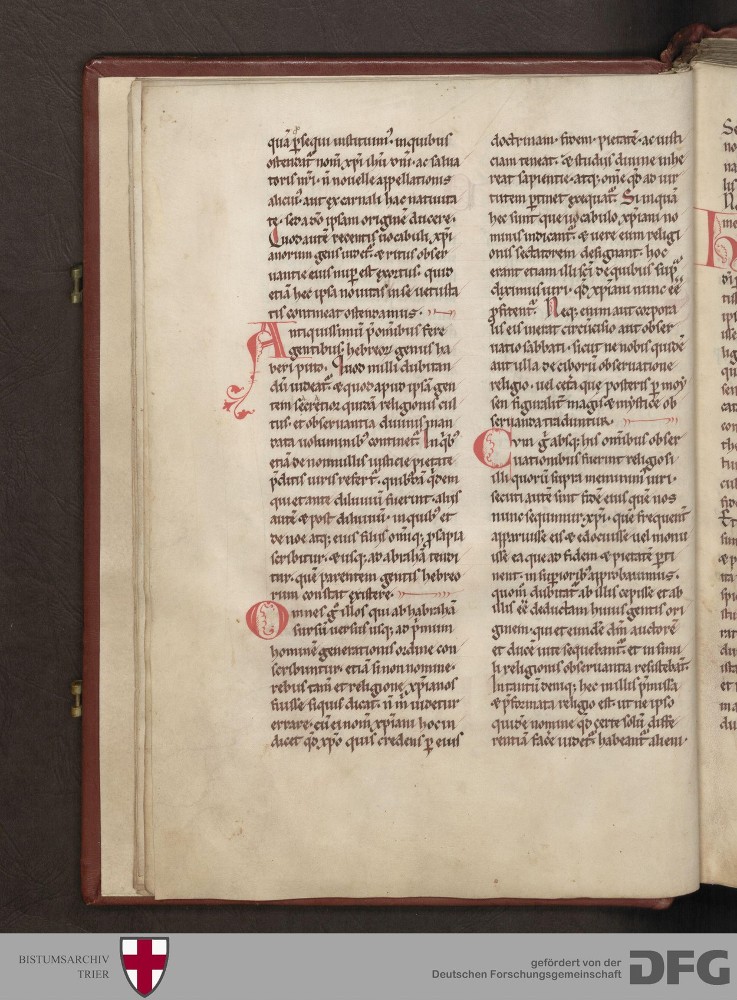 quā ꝑsequi instituim᷒. in quibus
ostendat᷑ nom̄ xp̄i ihū uni᷒. ac salua
toris nr̄i. n̄ nouelle appellationis
alicui᷒ aut ex carnali hac natiuita
te. sed a dō ipsam originē ducere.
Quod autē recentis uocabuli xp̄i
anorum gens uidet᷑. & ritus obser
uantie eius nup̄ est exortus. quid
etiā hec ipsa nouitas in se uetusta
tis contineat ostendamus.
Antiquissimū p̄ omnibus fere
gentibus hebreoꝝ genus ha
beri puto. Quod nulli dubitan
dū uideat᷑. & quod apud ipsā gen
tem secretior quidā religionis cul
tus. et obseruantia diuinis man
data uoluminib᷒ continet᷑. In q̇b᷒
etiā de nonnullis iusticie pietate
p̄ditis uiris refert᷑. quibdā q̇dem
qui et ante diluuiū fuerint. aliis
autē & post diluuiū. in quib᷒ et
de noe atq; eius filiis om̄iq; ꝓsapia
scribitur. & usq; ad abrahā tendi
tur. quē parentem gentis hebreo
rum constat existere.
Omnes g̊ illos qui ab habrahā
sursū uersus usq; ad p̄mum
hominē generationis ordine con
scribuntur. etiā si non nomine.
rebus tam̄ et religione xp̄ianos
fuisse siquis dicat. n̄ m̄ uidetur
errare. cū ei nom̄ xp̄iani hoc in
dicet qd̄ xp̄o quis credens ꝑ eius
doctrinam. fidem. pietatē. ac iusti
ciam teneat. & studiis diuine inhe
reat sapientie. atq; om̄e qd̄ ad uir
tutem ꝑtinet exequat᷑. Si inquā
hec sunt que uocabulo xp̄iani no
minis indicant᷑. & uere eum religi
onis sectatorem designant. hoc
erant etiam illi sc̄i de quibus sup̄
diximus uiri. qd̄ xp̄iani nunc eē
ꝓfitent᷑. Neq; enim aut corpora
lis eis inerat circucisio aut obser
uatio sabbati. sicut ne nobis quidē
aut ulla de ciborū obseruatione
religio. uel cetā que posteris ꝑ moy
sen figuralit᷑ magis & mystice ob
seruanda traduntur.
Cvm g̊ absq; his om̄ibus obser
uationibus fuerint religiosi
illi quorū supra meminim᷒ uiri.
secuti autē sint fidē eius quē nos
nunc sequimur xp̄i. quē frequent᷑
apparuisse eis & edocuisse uel monu
isse ea que ad fidem & pietatē ꝑti
nent. in sup̄iorib᷒ approbauimus.
quom̄ dubitat᷑ ab illis cepisse et ab
illis eē deductam huius gentis ori
ginem. qui et eundē dm̄ auctorē
et ducē uite sequebant᷑. et in simi
li religionis obseruantia resistebāt.
In tantū deniq; hec in illis p̄missa
& p̄formata religio est. ut ne ipso
quidē nomine qd̄ certe solū diffe
rentiā facē uidet᷑. habeant᷑ alieni.
BISTUMSARCHIV
TRIER
gefördert von der
Deutschen Forschungsgemeinschaft
DFG